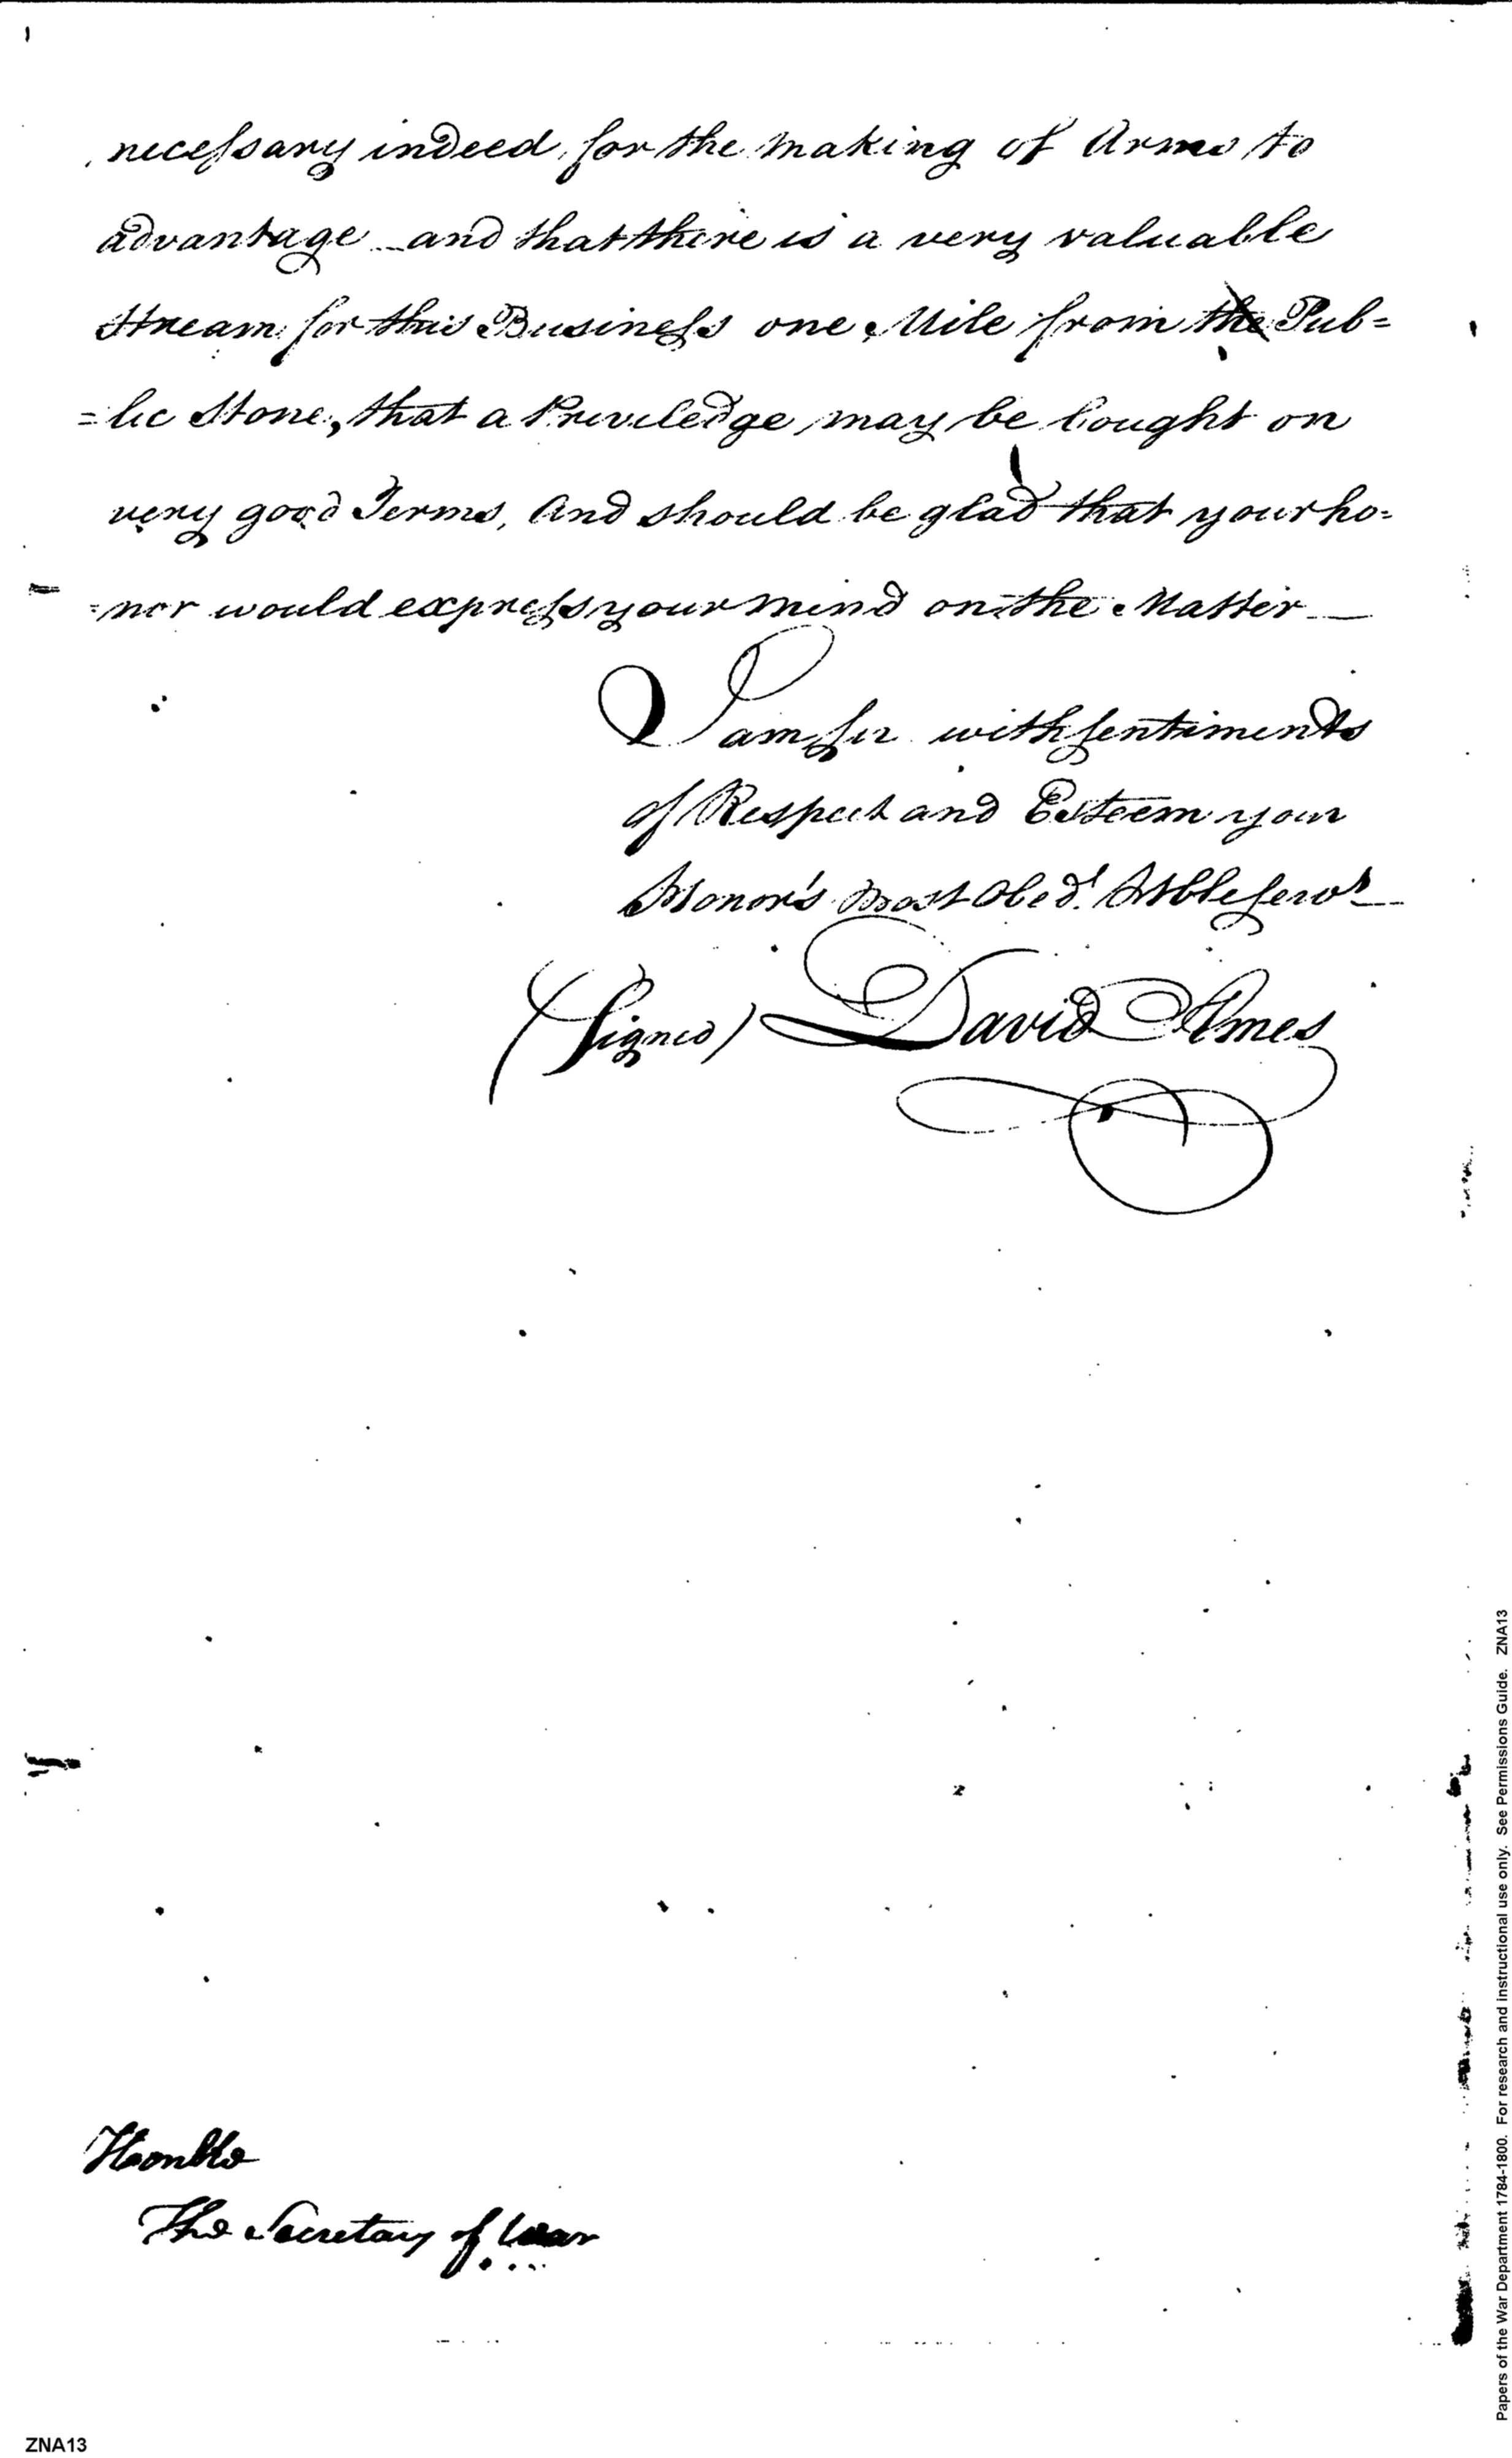 necessary indeed, for the making of Arms to
advantage and that there is a very valuable
Stream for this Business one Mile from the Pub=
=lic Store, that a Priviledge may be bought on
very good Terms, And should be glad that your ho=
=nor would express your mind on the Matter —
I am sir with sentiments
of Respect and Esteem your
Honor's most Obedt. Hbleservt
(Signed) David Ames
Honble
The Secretary of War
ZNA13
Papers of the War Department 1784-1800. For research and instructional use only. See Permissions Guide. ZNA13